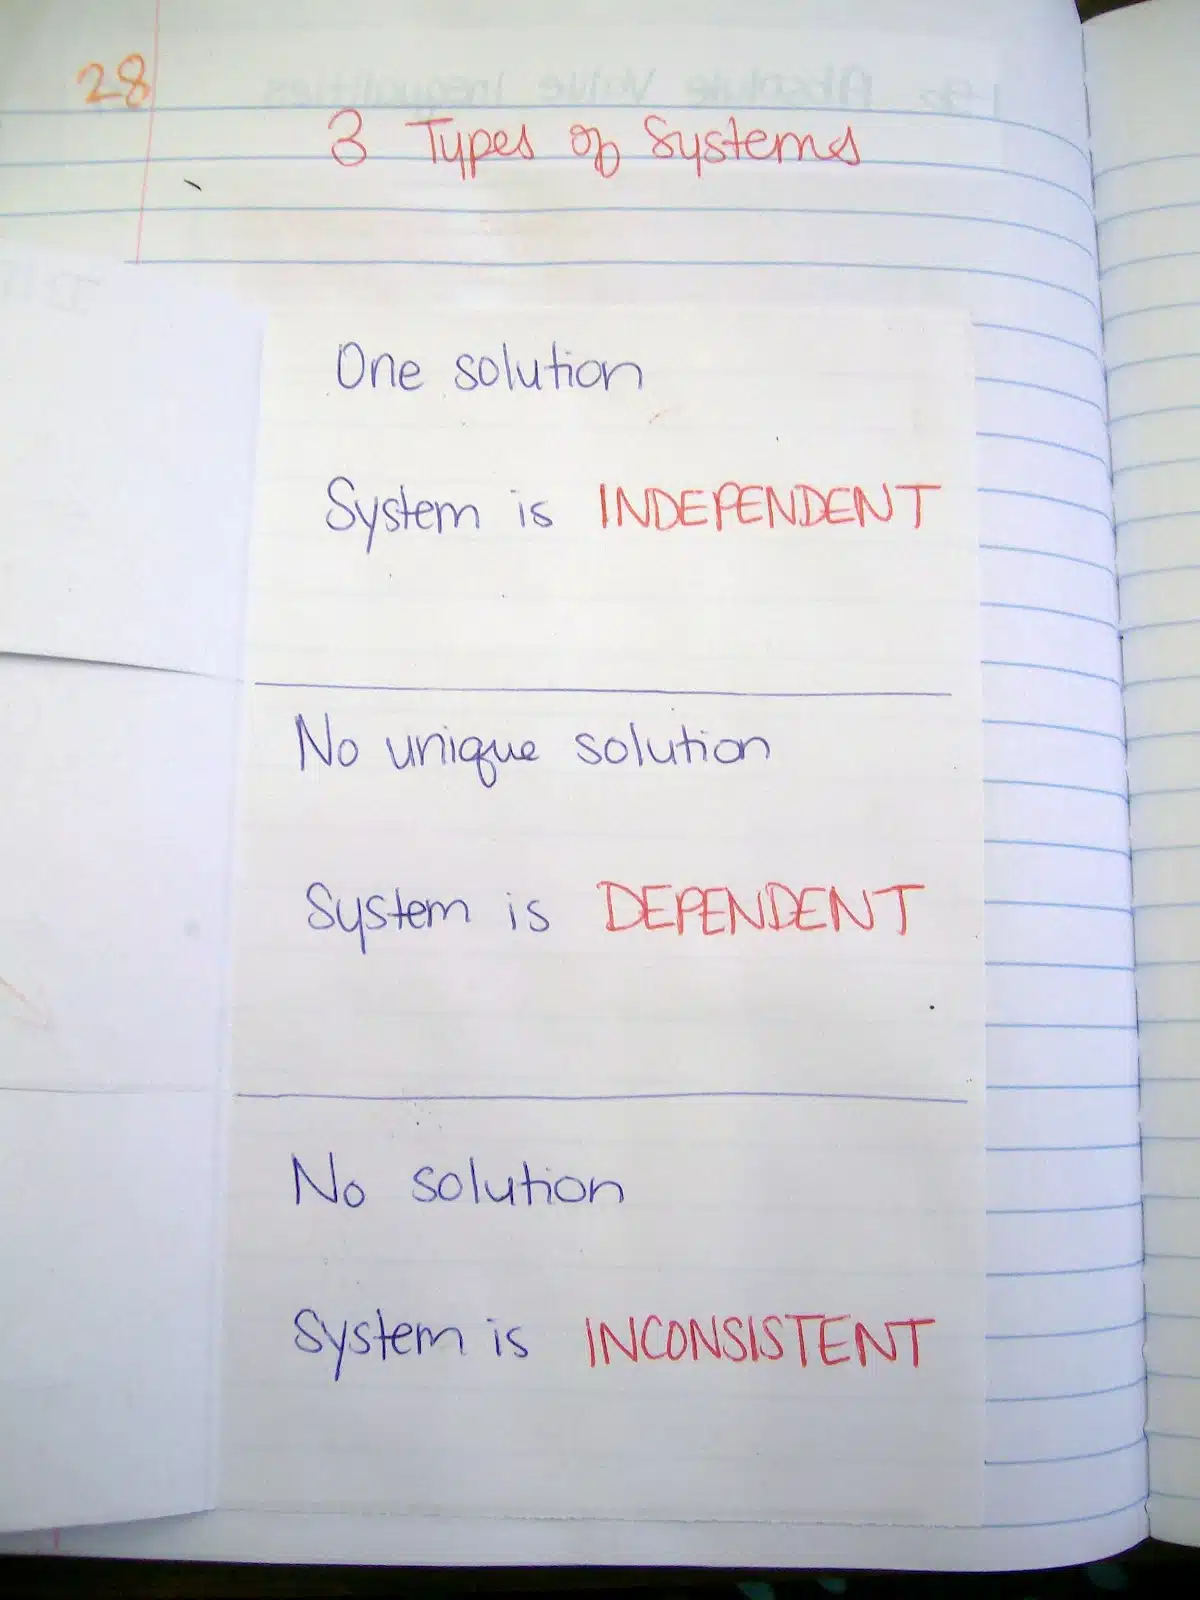 28
3 Types of Systems
One solution
System is INDEPENDENT
No unique solution
System is DEPENDENT
No solution
System is INCONSISTENT